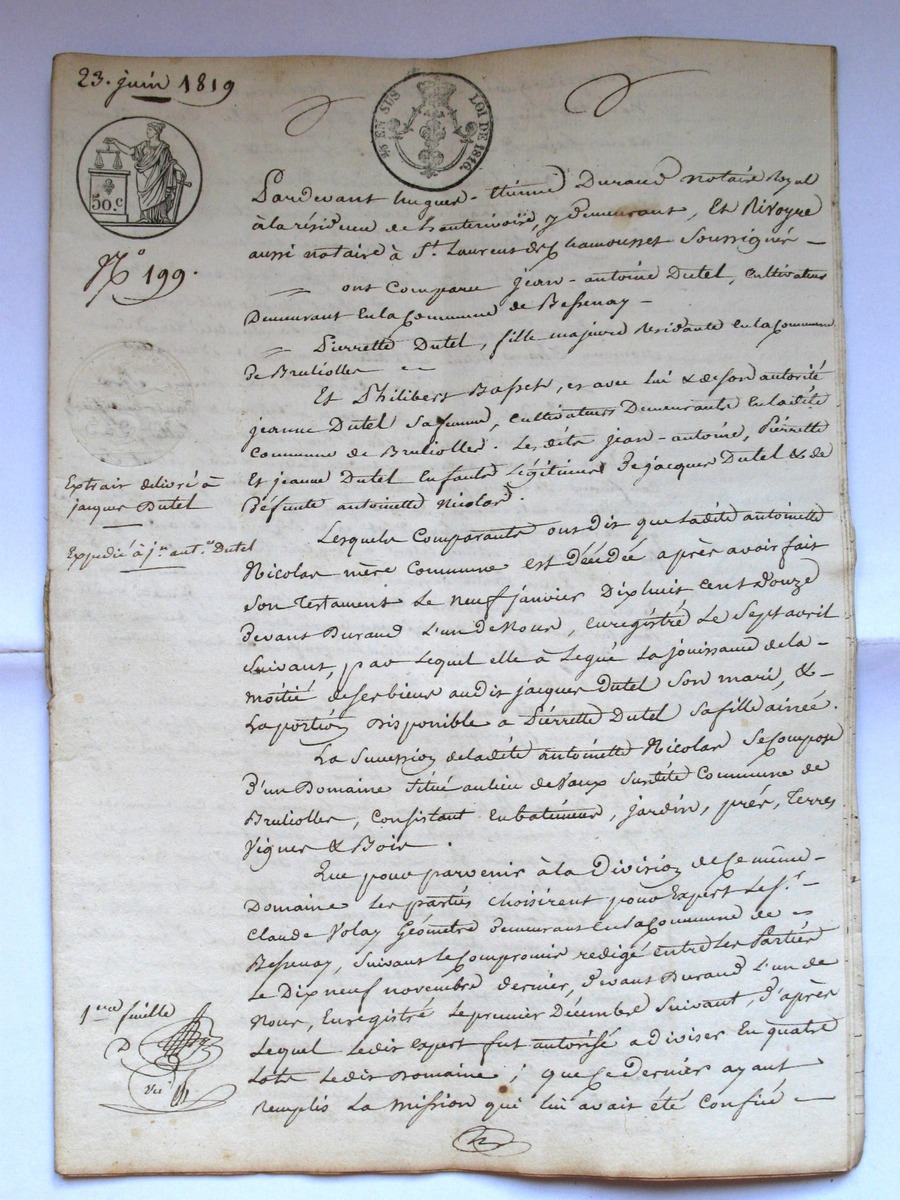 23. juin 1819
50.C
EN SUS LOI DE 1816.
N.º 199.
Pardevant hugues-Etienne Durand notaire Royal
à la résidence de hauterivoire, y demeurant, Et Rivoyre
aussi notaire à St. Laurent de Chamousset Soussignés -
= ont Comparu jean-antoine Dutel, cultivateur
Demeurant En la Commune de Bessenay -
= Pierrette Dutel, fille majeure Residante en la Commune
de Brulioller
Et Philibert Basset, et avec lui & de son autorité
jeanne Dutel Sa femme, cultivateurs Demeurants En ladite
Commune de Brulioller. Lesdits jean-antoine, Pierrette
Et jeanne Dutel Enfants Légitimes de jacques Dutel & de
Défunte antoinette Nicolas.
Extrait délivré à
jacques Dutel
Expedié à jn. ant.e Dutel
Lesquels Comparants ont Dit que Ladite antoinette
Nicolas mère Commune est Décédée après avoir fait
Son Testament Le neuf janvier Dix huit cent Douze
devant Durand L'un de Nous, enregistré Le Sept avril
Suivant, par Lequel elle à Légué La jouissance de la
moitié de ses biens audit jacques Dutel Son mari, &
La portion Disponible à Pierrette Dutel sa fille ainée.
La Succession de ladite antoinette Nicolas Se Compose
D'un Domaine Situé au lieu de Vaux Susdite Commune de
Brulioller, Consistant en batiments, jardin, prés, Terres
Vignes & Bois.
Que pour parvenir à la Division de Ce même
Domaine les parties choisirent pour Expert Le Sr.
Claude Volay Géomètre demeurant En la Commune de
Bessenay, Suivant Le Compromis redigé entre Les Parties
Le Dix neuf novembre dernier, devant Durand L'un de
Nous, Enregistré Le premier Décembre Suivant, D'après
Lequel Ledit expert fut autorisé a diviser En quatre
Lots Ledit Domaine ; que Ce Dernier ayant
remplis La mission qui lui avait été Confiée
1ere feuille